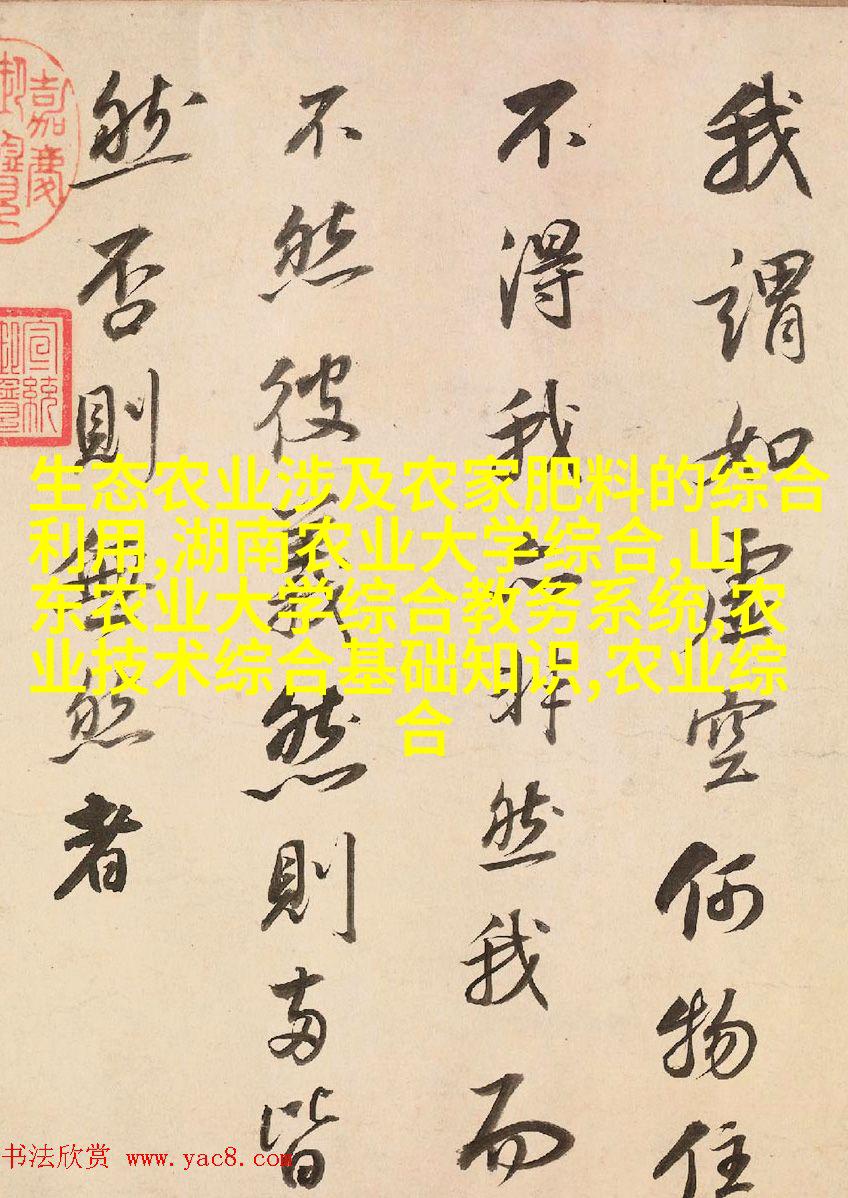 我謂如虛空何物住
不得我非然我而
不然彼義然則兩皆
然否則無然者
嘉慶
御覽
宣統
生态农业涉及农家肥料的综合
利用,湖南农业大学综合,山
东农业大学综合教务系统,农
业技术综合基础知识,农业综
合
书法欣赏 www.yac8.com